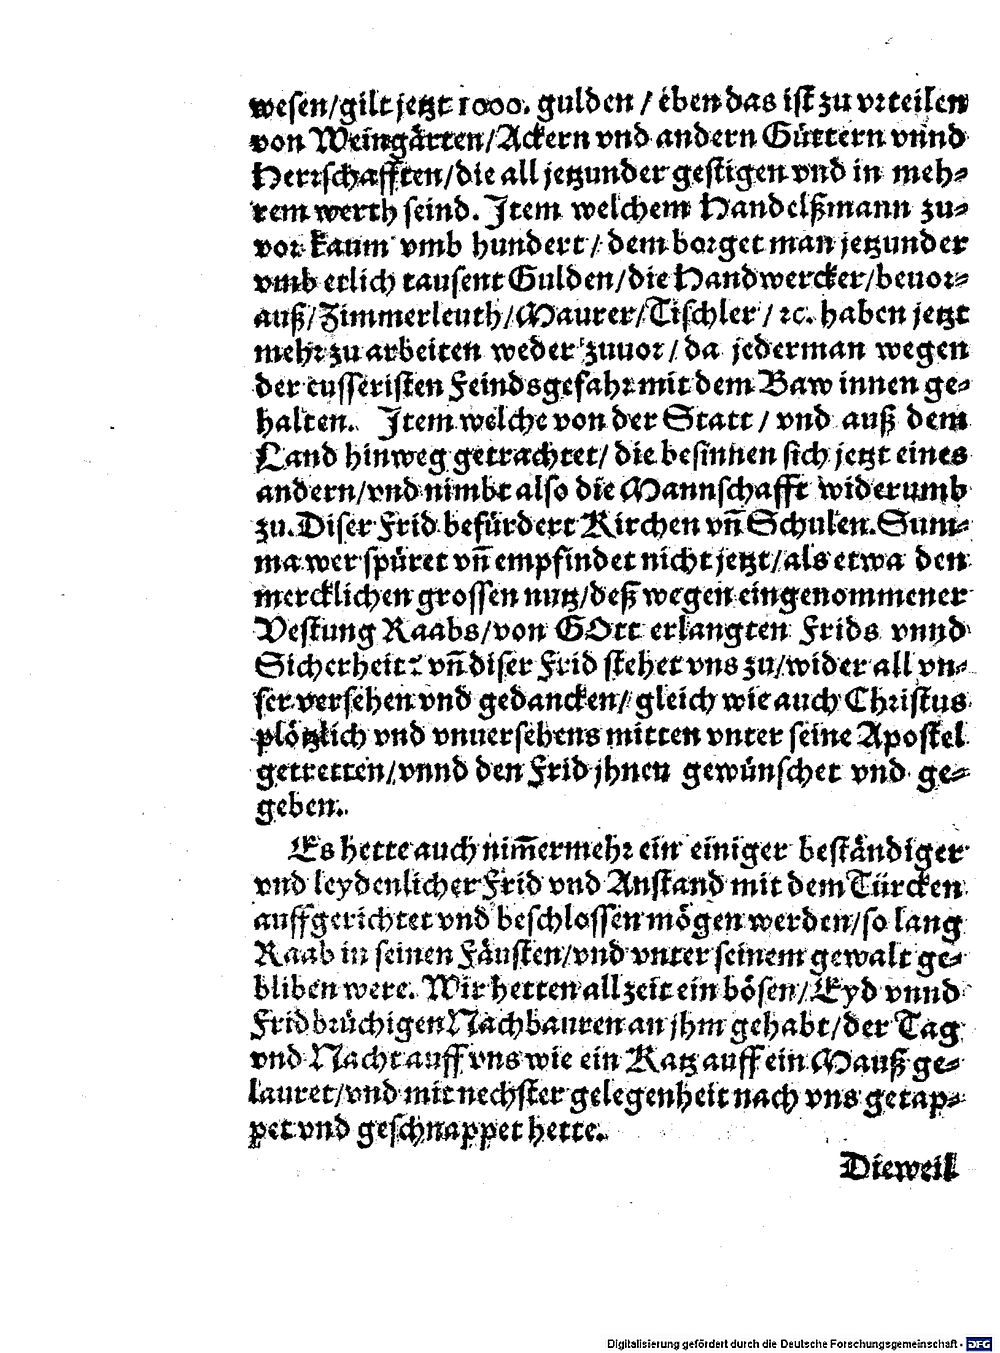 wesen/gilt jetzt 1000. gulden / eben das ist zu vrteilen
von Weingärten/Ackern vnd andern Güttern vnnd
Herrschafften/die all jetzunder gestigen vnd in meh-
rem werth seind. Item welchem Handelßmann zu-
vor kaum vmb hundert / dem borget man jetzunder
vmb etlich tausent Gulden/die Handwercker/beuor-
auß/Zimmerleuth/Maurer/Tischler / ꝛc. haben jetzt
mehr zu arbeiten weder zuuor / da jederman wegen
der eusseristen Feindsgefahr mit dem Baw innen ge-
halten. Item welche von der Statt / vnd auß dem
Land hinweg getrachtet/ die besinnen sich jetzt eines
andern/vnd nimbt also die Mannschafft widerumb
zu. Diser Frid befürdert Kirchen vn̄ Schulen. Sum-
ma wer spüret vn̄ empfindet nicht jetzt/als etwa den
mercklichen grossen nutz/deß wegen eingenommener
Vestung Raabs/von GOtt erlangten Frids vnnd
Sicherheit? vn̄ diser Frid stehet vns zu/wider all vn-
ser versehen vnd gedancken/ gleich wie auch Christus
plötzlich vnd vnuersehens mitten vnter seine Apostel
getretten/vnnd den Frid jhnen gewünschet vnd ge-
geben.
Es hette auch nim̄ermehr ein einiger beständiger
vnd leydenlicher Frid vnd Anstand mit dem Türcken
auffgerichtet vnd beschlossen mögen werden/so lang
Raab in seinen Fäusten/vnd vnter seinem gewalt ge-
bliben were. Wir hetten allzeit ein bösen/Eyd vnnd
Fridbrüchigen Nachbauren an jhm gehabt/der Tag
vnd Nacht auff vns wie ein Katz auff ein Mauß ge-
lauret/vnd mit nechster gelegenheit nach vns getap-
pet vnd geschnappet hette.
Dieweil
Digitalisierung gefördert durch die Deutsche Forschungsgemeinschaft - DFG